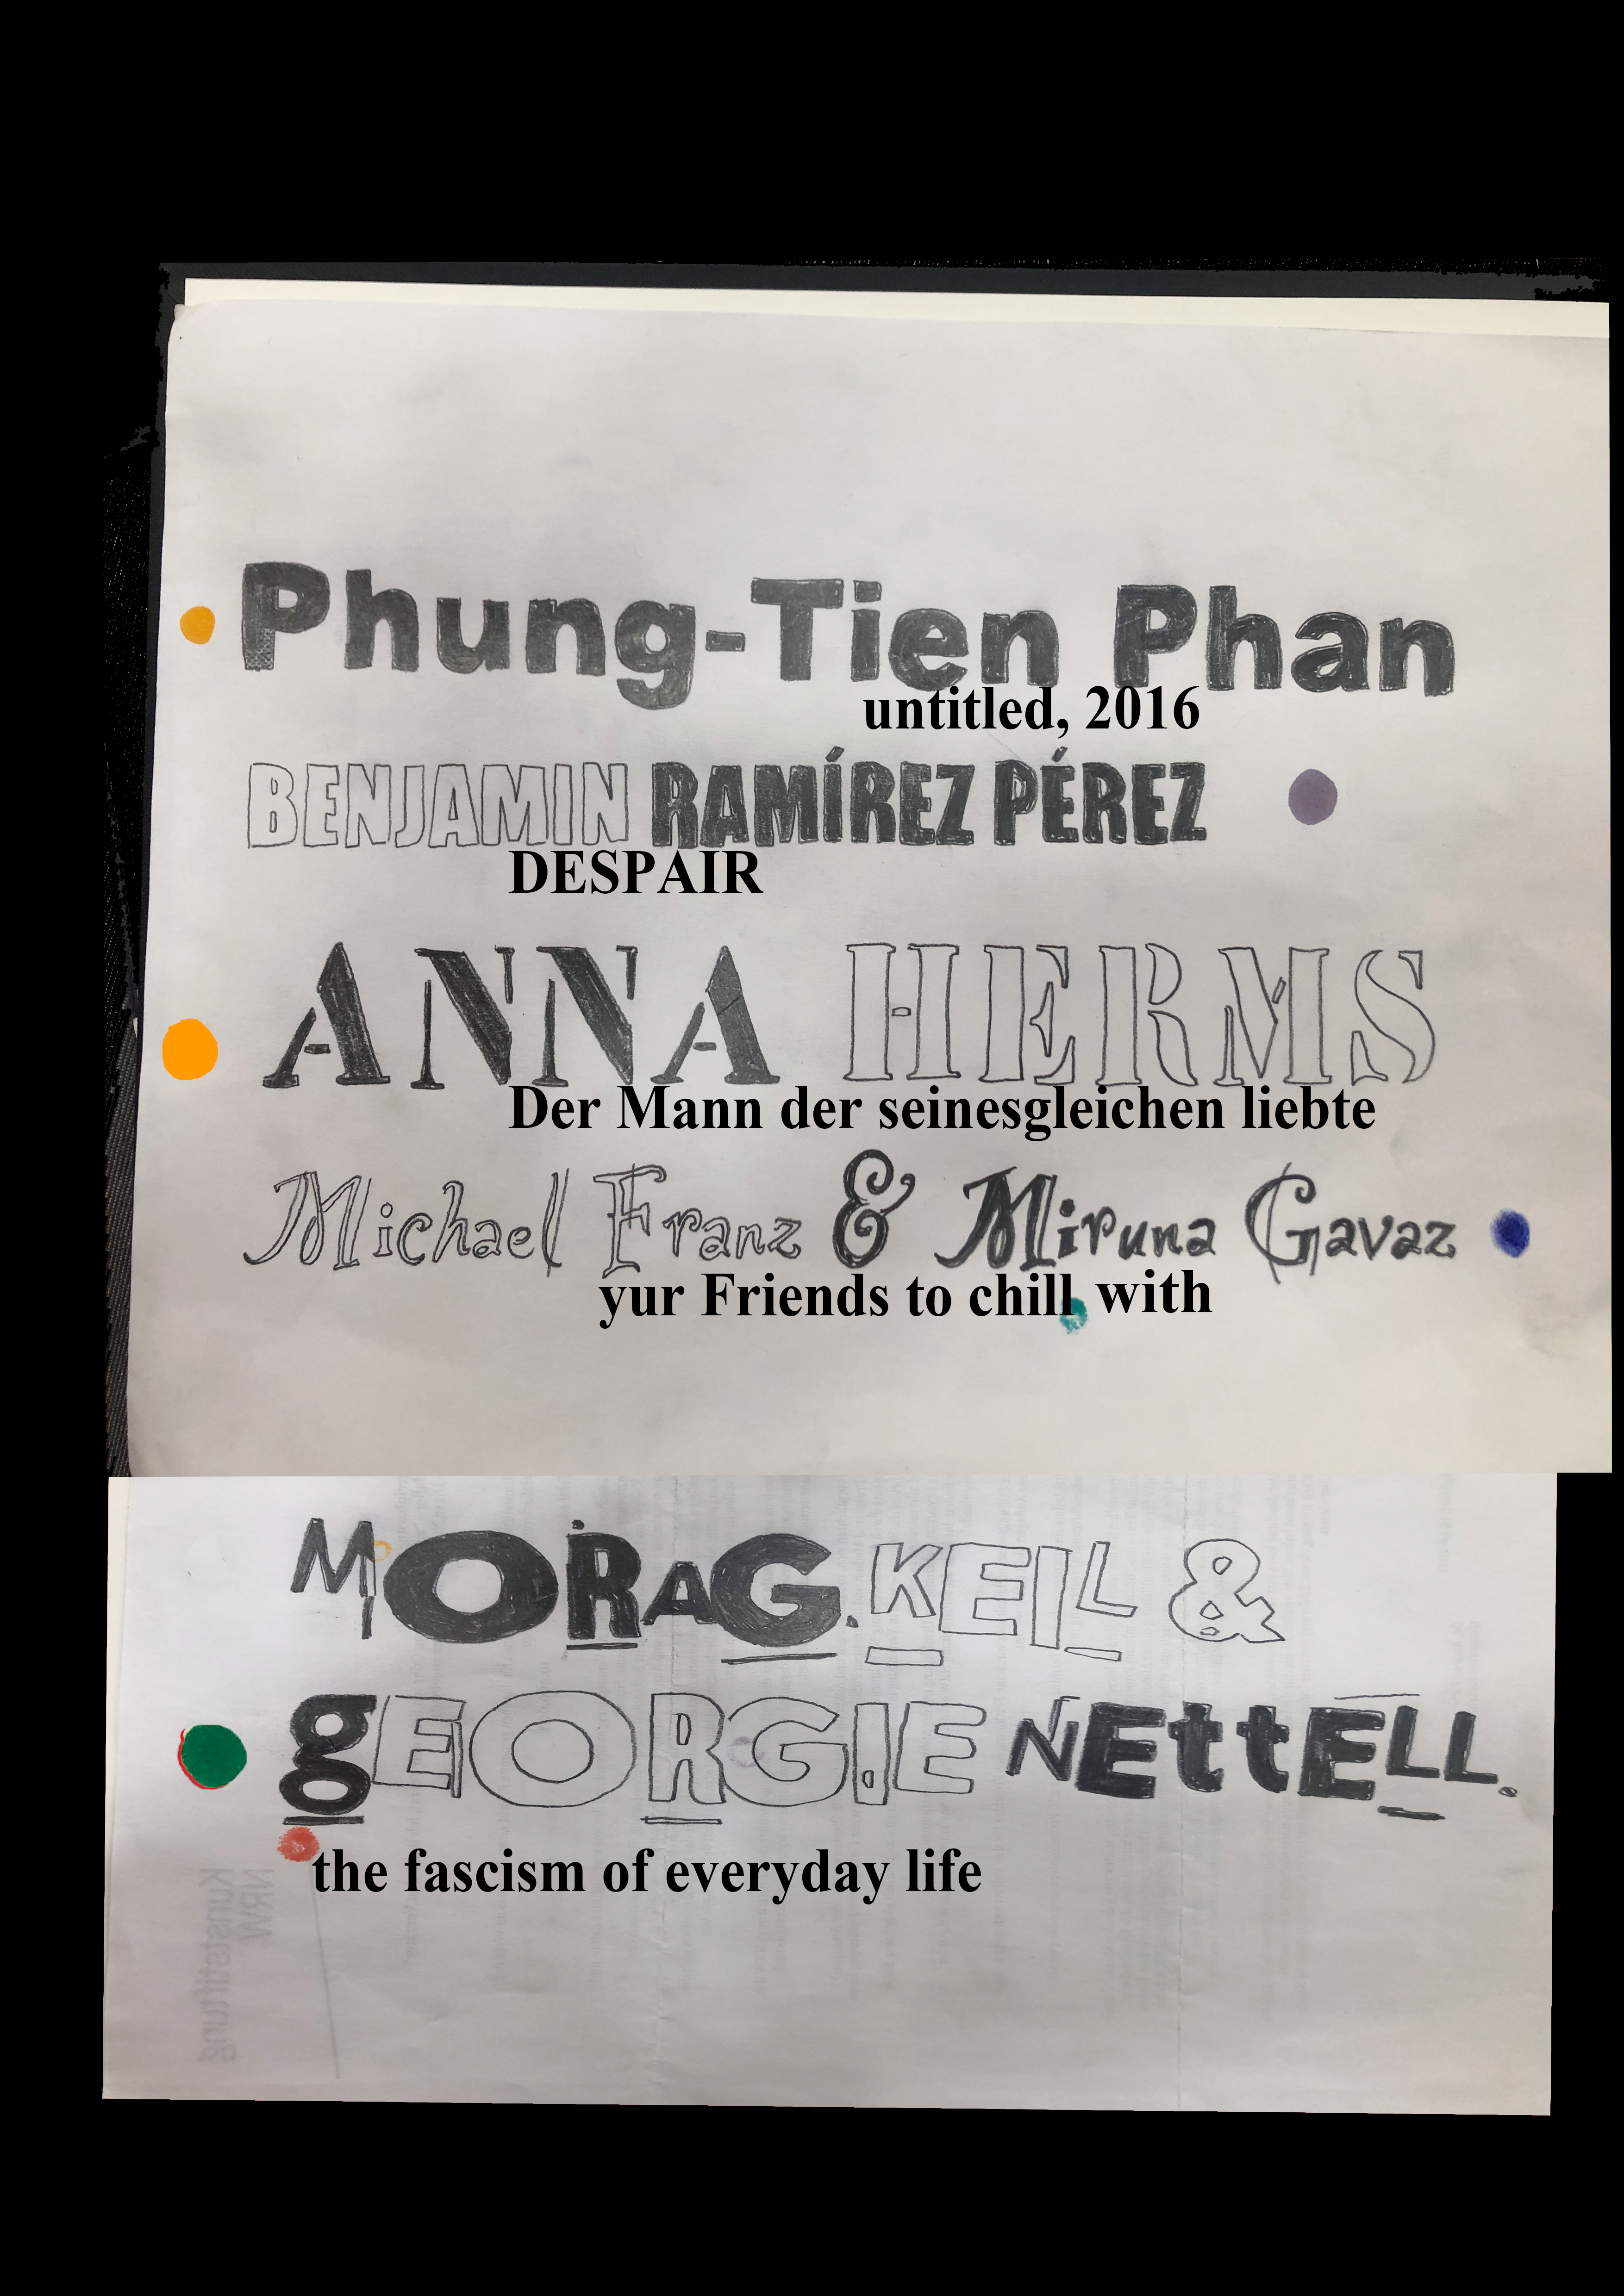 Phung-Tien Phan
untitled, 2016
BENJAMIN RAMÍREZ PÉREZ
DESPAIR
ANNA HERMS
Der Mann der seinesgleichen liebte
Michael Franz & Miruna Gavaz
yur Friends to chill with
MORAG. KEIL &
gEORGIE NEttELL.
the fascism of everyday life
Kunststiftung
NRW